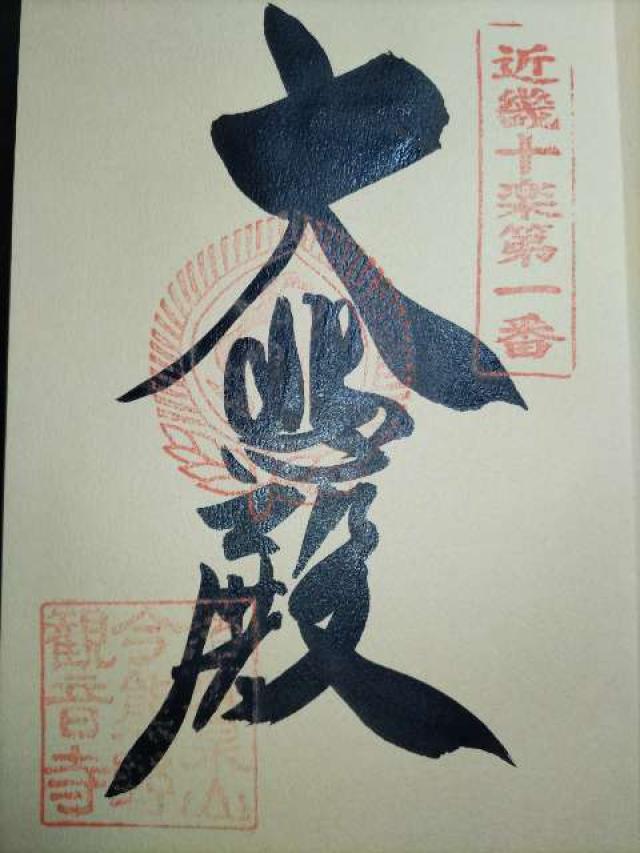 近畿十楽第一番
大悲殿
今熊野
観音寺